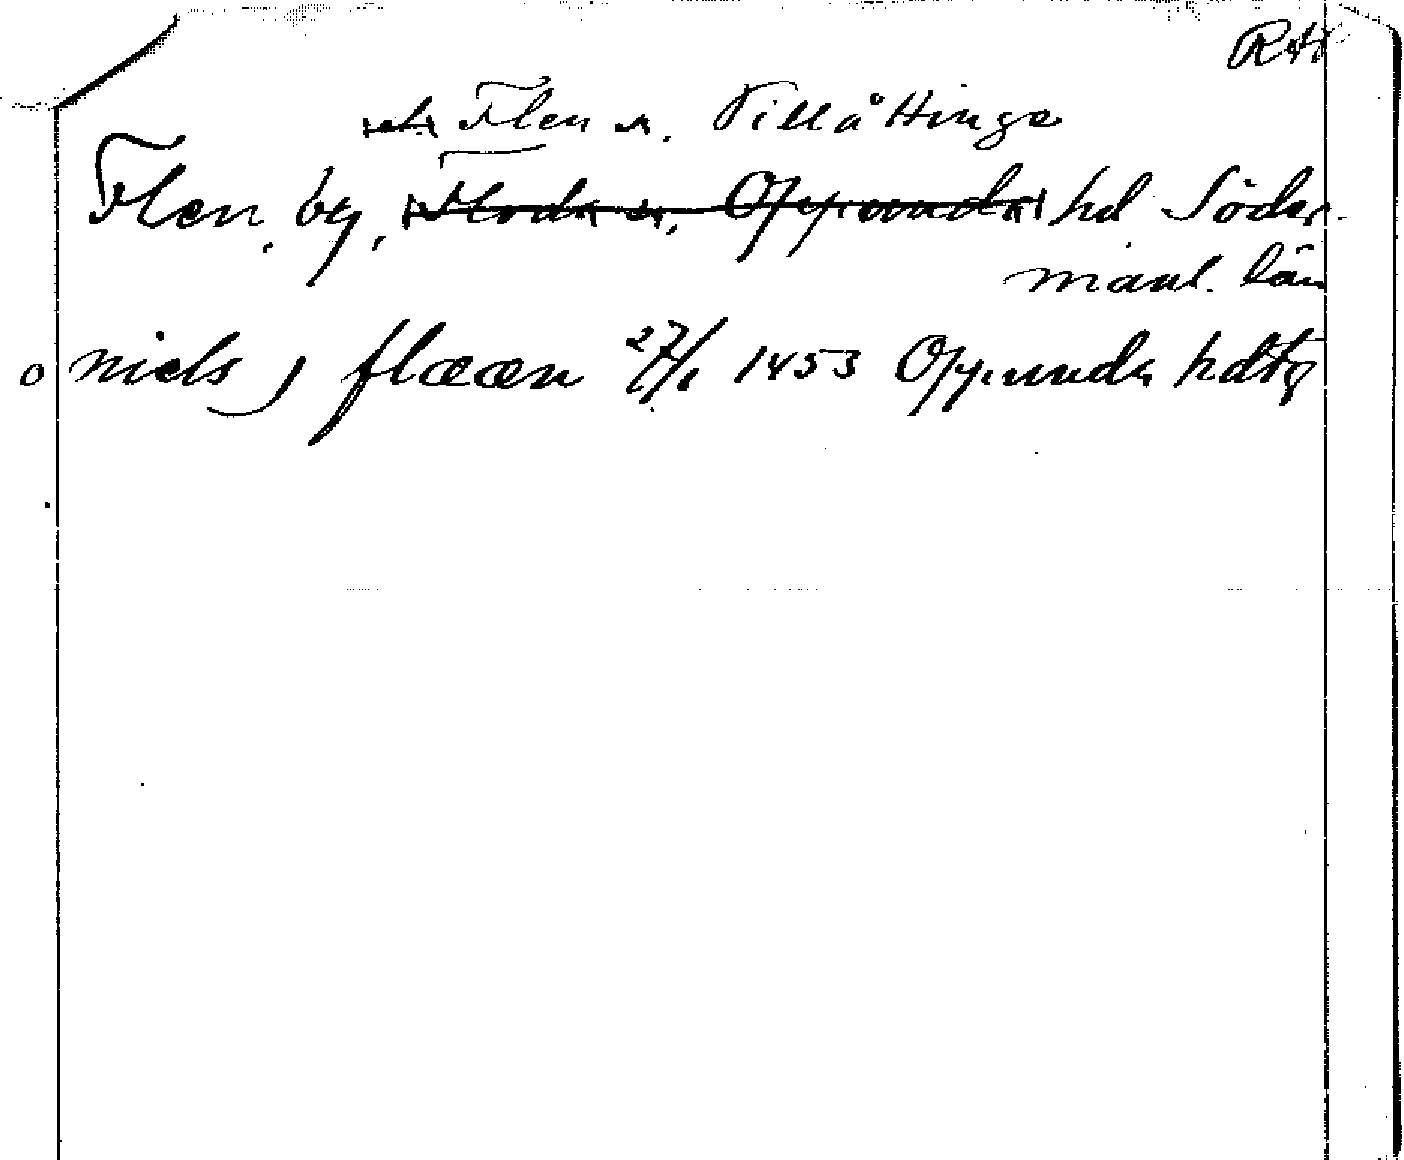 RAH
Flen s. Villåttinge
Flen, by, Floda s., Oppunda hd Söder-
manl. län
o niels j flææn 27/1 1453 Oppunda hdtg